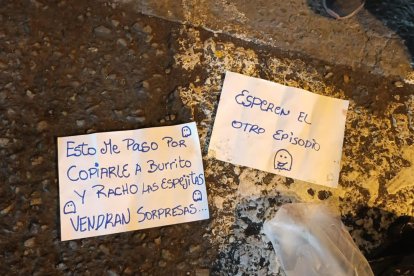 ESTO ME PASO POR
COPIARLE A BURRITO
Y RACHO LAS ESPEJITAS
VENDRAN SORPRESAS...
ESPEREN EL
OTRO EPISODIO